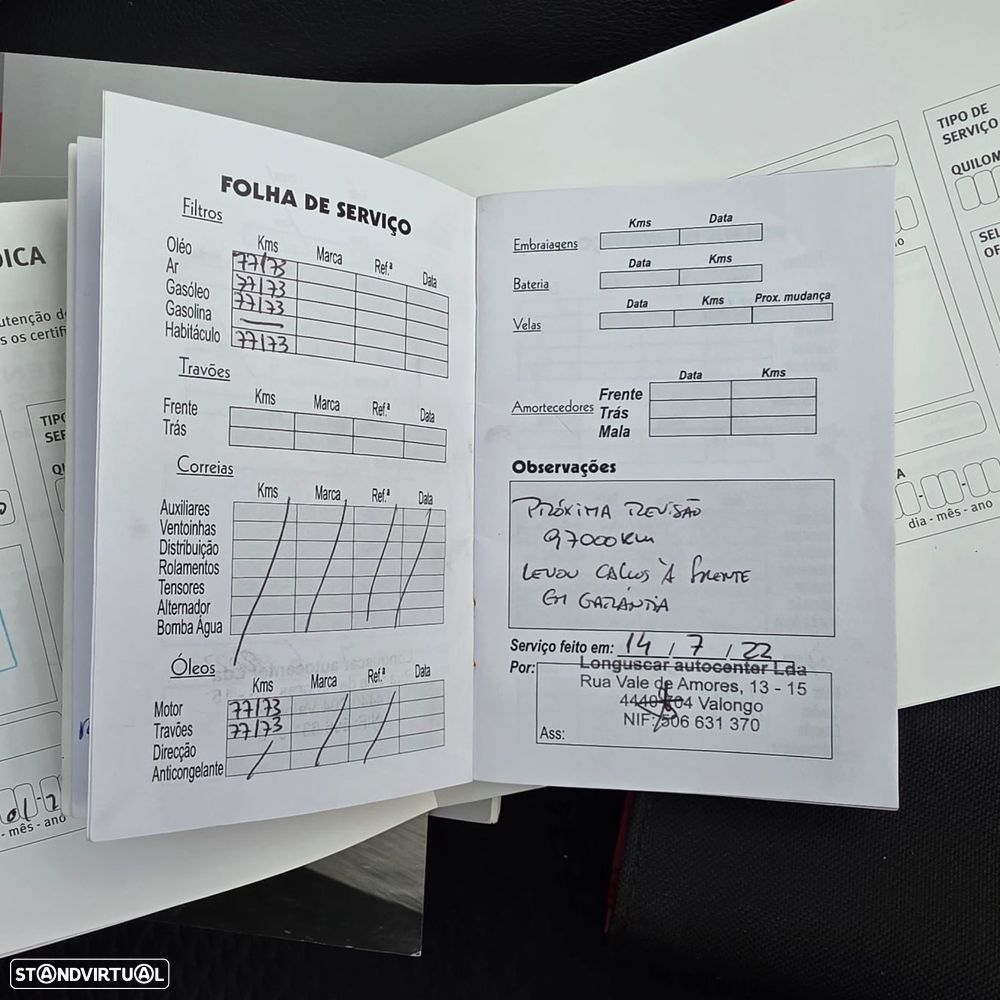 FOLHA DE SERVIÇO
Filtros
Kms Marca Ref.ª Data
Oléo 77173
Ar 77173
Gasóleo 77173
Gasolina —
Habitáculo 77173
Travões
Kms Marca Ref.ª Data
Frente
Trás
Correias
Kms Marca Ref.ª Data
Auxiliares
Ventoinhas
Distribuição
Rolamentos
Tensores
Alternador
Bomba Água
Óleos
Kms Marca Ref.ª Data
Motor 77173
Travões 77173
Direcção
Anticongelante
Kms Data
Embraiagens
Data Kms
Bateria
Data Kms Prox. mudança
Velas
Data Kms
Amortecedores
Frente
Trás
Mala
Observações
PRÓXIMA REVISÃO
97000 Km
LEVOU CALÇOS À FRENTE
EM GARANTIA
Serviço feito em: 14 / 7 / 22
Por:
Longuscar autocenter Lda
Rua Vale de Amores, 13 - 15
Valongo
NIF: 506 631 370
Ass:
DICA
TIPO DE
SERVIÇO
QUILOM
SEL
OF
dia - mês - ano
TIPO
SER
- mês - ano
STANDVIRTUAL